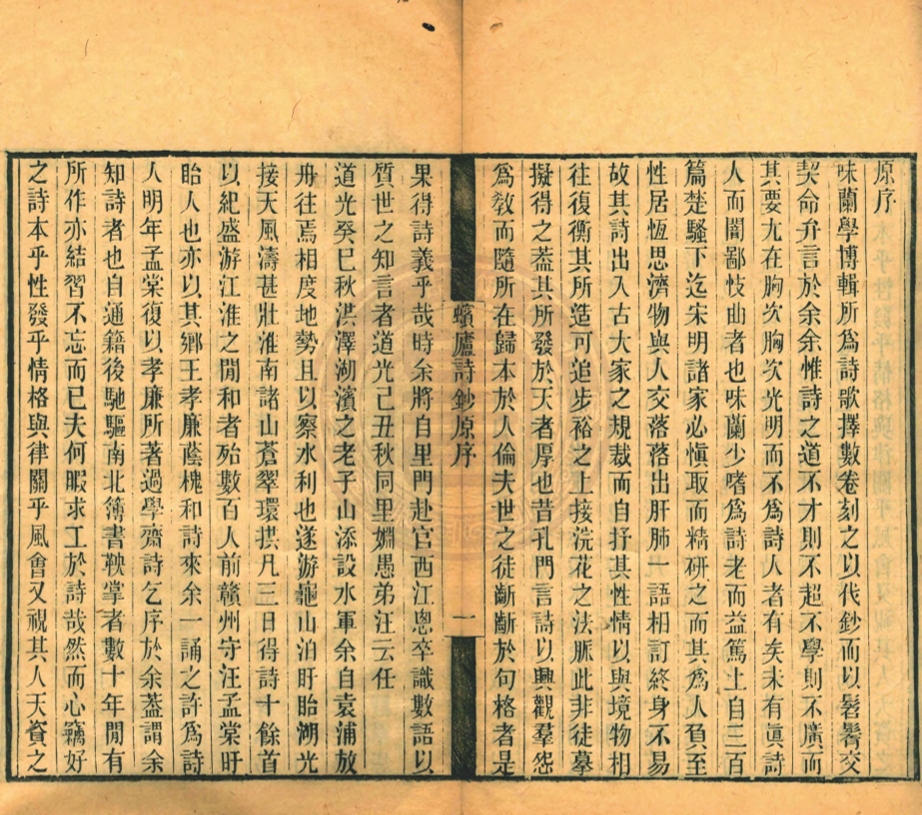 原序
味蘭學博輯所爲詩歌擇數卷刻之以代鈔而以髫髾交
契命弁言於余余惟詩之道不才則不超不學則不廣而
其要尤在胸次胸次光明而不爲詩人者有矣未有眞詩
人而闇鄙忮曲者也味蘭少嗜爲詩老而益篤上自三百
篇楚騷下迄宋明諸家必愼取而精研之而其爲人負至
性居恆思濟物與人交落落出肝肺一語相訂終身不易
故其詩出入古大家之規裁而自抒其性情以與境物相
往復衡其所造可追步裕之上接浣花之法脈此非徒摹
擬得之葢其所發於天者厚也昔孔門言詩以興觀羣怨
爲敎而隨所在歸本於人倫夫世之徒齗齗於句格者是
蠙廬詩鈔原序
一
果得詩義乎哉時余將自里門赴官西江悤卒識數語以
質世之知言者道光己丑秋同里婣愚弟汪云任
道光癸巳秋洪澤湖濱之老子山添設水軍余自袁浦放
舟往焉相度地勢且以察水利也遂游龜山泊盱眙湖光
接天風濤甚壯淮南諸山蒼翠環拱凡三日得詩十餘首
以紀盛游江淮之閒和者殆數百人前贛州守汪孟棠盱
眙人也亦以其鄉王孝廉蔭槐和詩來余一誦之許爲詩
人明年孟棠復以孝廉所著過學齋詩乞序於余葢謂余
知詩者也自通籍後馳驅南北簿書鞅掌者數十年閒有
所作亦結習不忘而已夫何暇求工於詩哉然而心竊好
之詩本乎性發乎情格與律關乎風會又視其人天資之